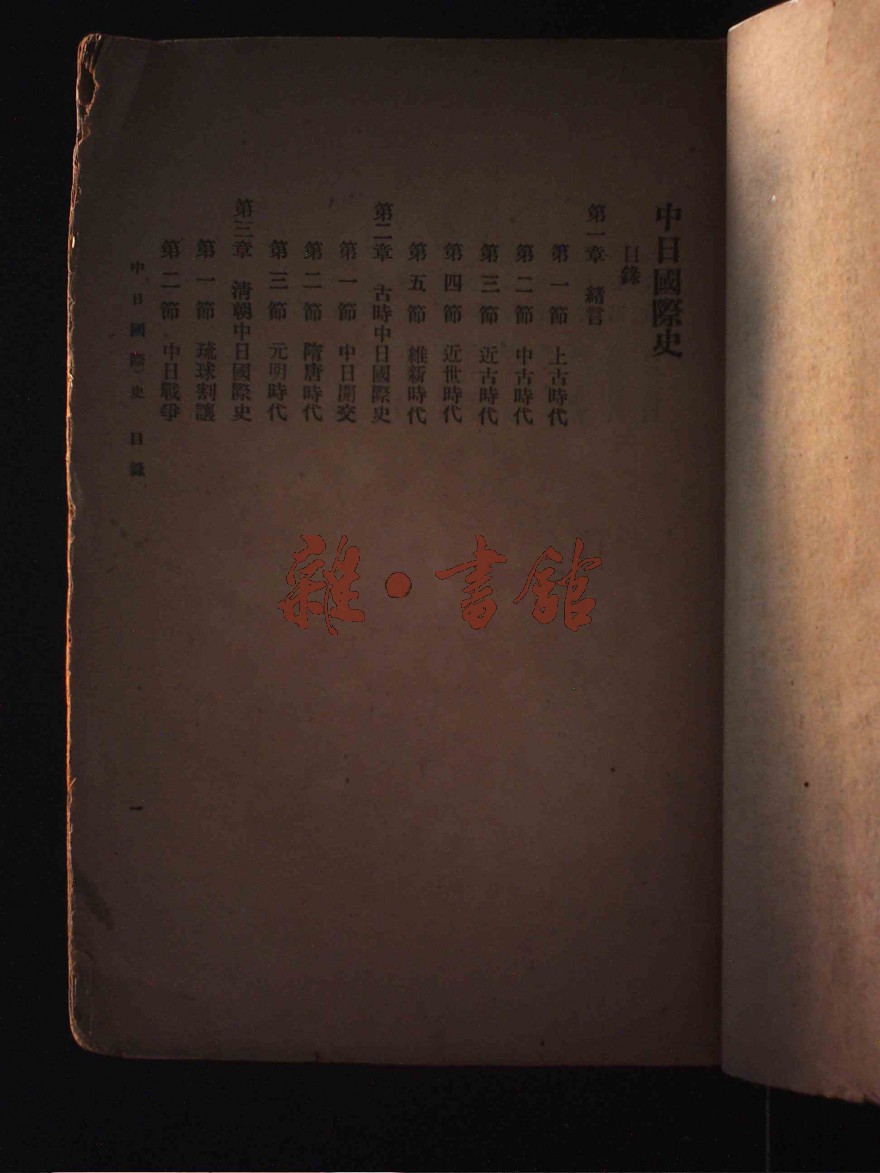 中日國際史
目錄
第一章 緒言
第一節 上古時代
第二節 中古時代
第三節 近古時代
第四節 近世時代
第五節 維新時代
第二章 古時中日國際史
第一節 中日開交
第二節 隋唐時代
第三節 元明時代
第三章 清朝中日國際史
第一節 琉球割讓
第二節 中日戰爭
中日國際史 目錄
一
雜·書館